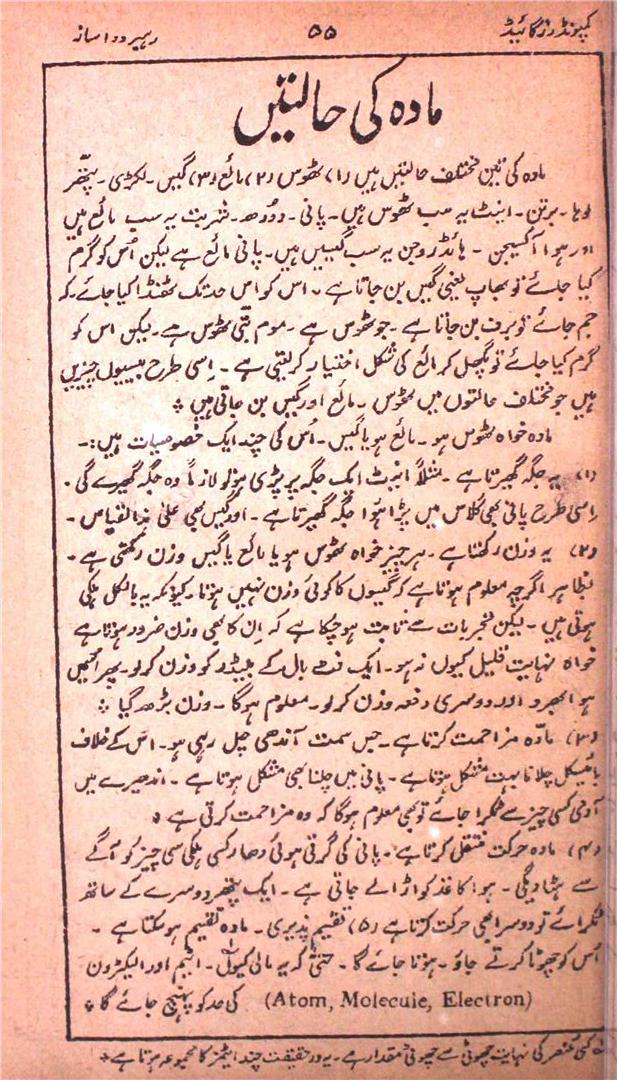 کمپونڈرز گائیڈ ۵۵ رہبر دوا ساز
مادہ کی حالتیں
مادہ کی تین مختلف حالتیں ہیں (۱) ٹھوس (۲) مائع (۳) گیس۔ لکڑی۔ پتھر
لوہا۔ برتن۔ اینٹ یہ سب ٹھوس ہیں۔ پانی۔ دودھ۔ شربت یہ سب مائع ہیں
اور ہوا آکسیجن۔ ہائڈروجن یہ سب گیسیں ہیں۔ پانی مائع ہے لیکن اُس کو گرم
کیا جائے تو بھاپ یعنی گیس بن جاتا ہے۔ اس کو اس حد تک ٹھنڈا کیا جائے۔ کہ
جم جائے تو برف بن جاتا ہے۔ جو ٹھوس ہے۔ موم بتی ٹھوس ہے۔ لیکن اس کو
گرم کیا جائے تو پگھل کر مائع کی شکل اختیار کر لیتی ہے۔ اِسی طرح بیسیوں چیزیں
ہیں جو مختلف حالتوں میں ٹھوس۔ مائع اور گیس بن جاتی ہیں *
مادہ خواہ ٹھوس ہو۔ مائع ہو یا گیس۔ اُس کی چند ایک خصوصیات ہیں:۔
(۱) یہ جگہ گھیرتا ہے۔ مثلاً اینٹ ایک جگہ پر پڑی ہو تو لازماً وہ جگہ گھیرے گی۔
اِسی طرح پانی بھی گلاس میں پڑا ہؤا جگہ گھیرتا ہے۔ اور گیس بھی علیٰ ہذا القیاس۔
(۲) یہ وزن رکھتا ہے۔ ہر چیز خواہ ٹھوس ہو یا مائع یا گیس وزن رکھتی ہے۔
بظاہر اگرچہ معلوم ہوتا ہے کہ گیسوں کا کوئی وزن نہیں ہوتا۔ کیونکہ یہ بالکل ہلکی
ہوتی ہیں۔ لیکن تجربات سے ثابت ہو چکا ہے کہ اِن کا بھی وزن ضرور ہوتا ہے
خواہ نہایت قلیل کیوں نہ ہو۔ ایک فٹ بال کے بلیڈر کو وزن کر لو۔ پھر اُس میں
ہوا بھرو اور دوسری دفعہ وزن کر لو۔ معلوم ہوگا۔ وزن بڑھ گیا *
(۳) مادّہ مزاحمت کرتا ہے۔ جس سمت آندھی چل رہی ہو۔ اس کے خلاف
بائیسکل چلانا بہت مشکل ہوتا ہے۔ پانی میں چلنا بھی مشکل ہوتا ہے۔ اندھیرے میں
آدمی کسی چیز سے ٹکرا جائے تو بھی معلوم ہوگا کہ وہ مزاحمت کرتی ہے *
(۴) مادہ حرکت منتقل کرتا ہے۔ پانی کی گرتی ہوئی دھار کسی ہلکی سی چیز کو آگے
سے ہٹا دیگی۔ ہوا کاغذ کو اڑا لے جاتی ہے۔ ایک پتھر دوسرے کے ساتھ
ٹکرائے تو دوسرا بھی حرکت کرتا ہے (۵) تقسیم پذیری۔ مادہ تقسیم ہو سکتا ہے۔
اُس کو چھوٹا کرتے جاؤ۔ ہوتا جائے گا۔ حتیٰ کہ یہ مالی کیول۔ ایٹم اور الیکٹرون
(Atom, Molecule, Electron) کی حد کو پہنچ جائے گا *
کسی عنصر کی نہایت چھوٹی سے چھوٹی مقدار ہے۔ یہ درحقیقت چند ایٹمز کا مجموعہ ہوتا ہے *